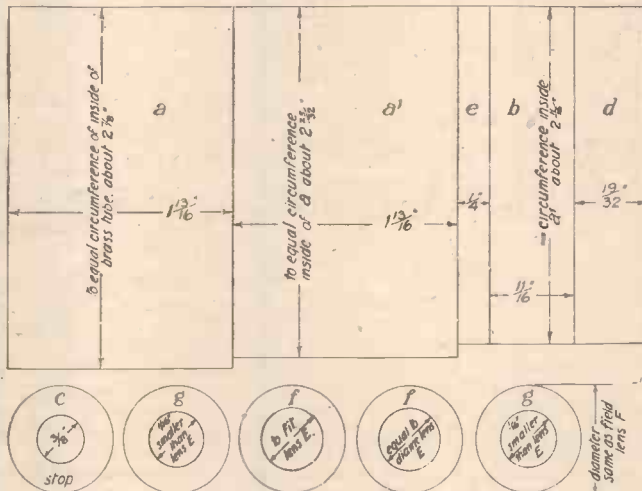 to equal circumference of inside of
brass tube, about 2 7/8"
a
1 13/16"
to equal circumference
inside of a about 2 23/32"
a'
1 13/16"
e
1/4"
b
circumference inside
a' about
11/16"
d
19/32"
c
3/8"
stop
g
smaller
than
lens E
f
to fit
lens E.
f
equal to
diame lens
E
g
1/16"
smaller
than lens
E.
diameter
same as field
lens F